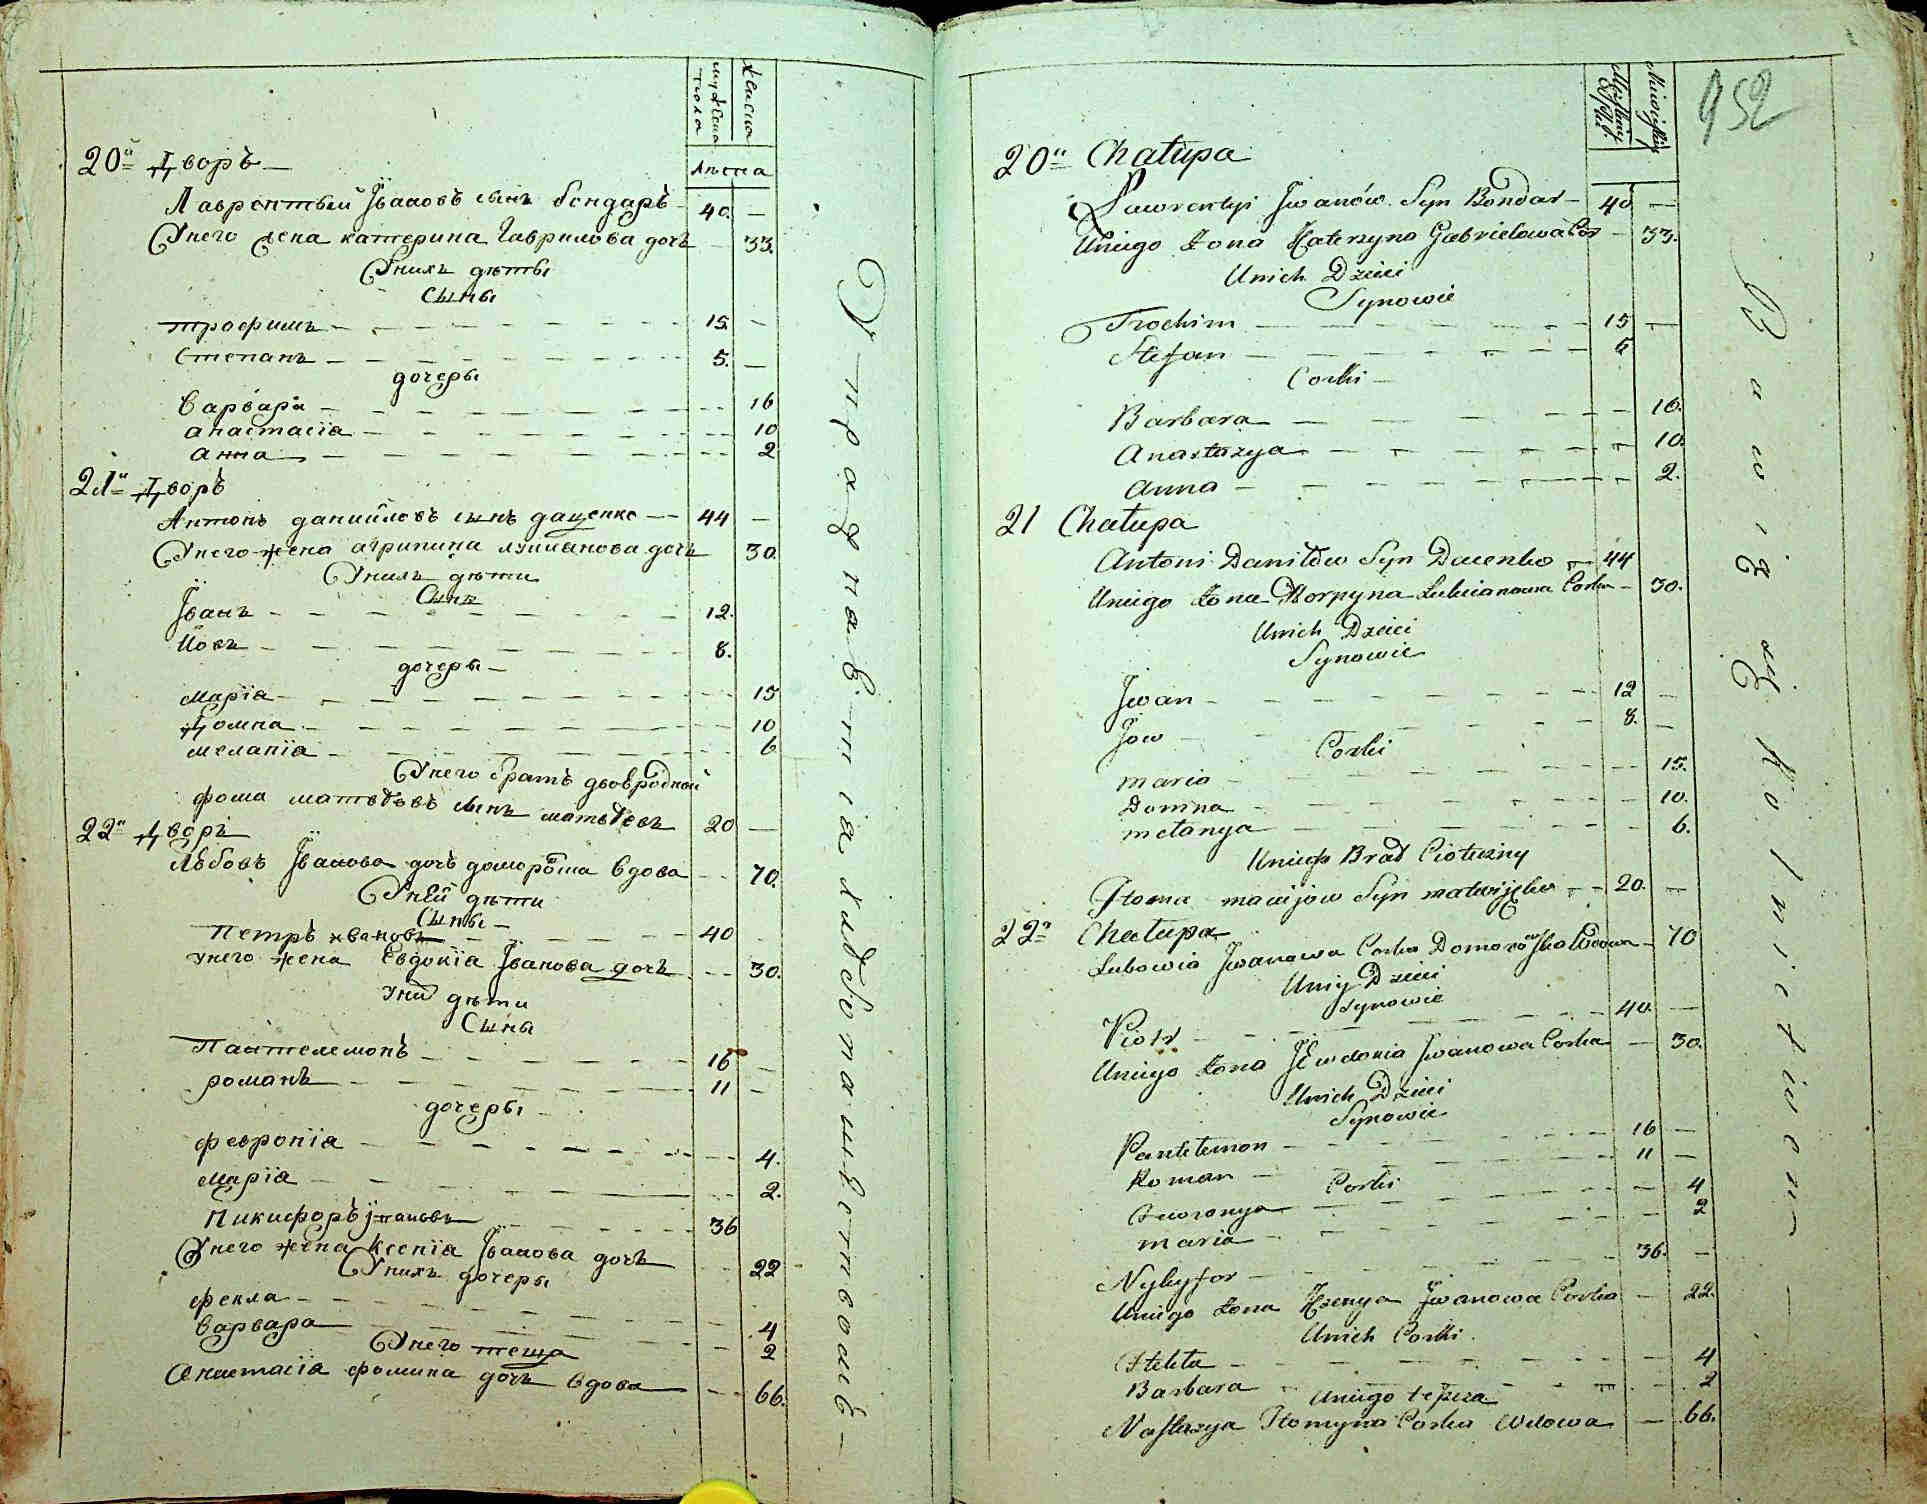 мужеска пола
женска
Лѣта
20й Дворъ —
Лаврентѣй Івановъ сынъ бондаръ 40. —
Унего жена катерина Гаврилова дочъ — 33.
Унихъ дѣты
Сыны
трофимъ — 15. —
Степанъ — 5. —
дочеры
Варвара — 16
анастасія — 10
анна — 2
21й Дворъ
Антонъ даниловъ сынъ даценко — 44 —
Унего жена агрипина лукианова дочъ 30.
Унихъ дѣти
Сынъ
Іванъ — 12.
Иовъ — 8.
дочеры —
Марія — 15
Домна — 10
меланія — 6
Унего братъ двоюродный
фома матвѣевъ сынъ матвѣевъ 20 —
22й Дворъ
Любовъ Іванова дочъ вдова — 70.
Уней дѣти
Сыны —
Петръ ивановъ — 40
унего жена Евдокіа Іванова дочъ — 30.
дѣти
Сыны
Пантелемонъ — 16 —
романъ — 11 —
дочеры
февронія — 4.
Марія — 2.
Никифоръ — 36
Унего жена Ксенія Іванова дочъ — 22
Унихъ дочеры
фекла — 4
Варвара — 2
Унего теща
Анастасіа фомина дочъ вдова — 66.
952
20а Chałupa
Ławrentyi Jwanów Syn Bondar — 40 —
Uniego Żona Katerzyna Gabrielowa Cor — 33.
Unich Dzieci
Synowie
Trochim — 15 —
Stefan — 5
Corki —
Barbara — 16.
Anastazya — 10.
Anna — 2.
21 Chałupa
Antoni Daniłow Syn Dacenko — 44
Uniego Żona Horpyna Łukianowna Corka — 30.
Unich Dzieci
Synowie
Jwan — 12 —
Jow — 8. —
Corki
maria — 15.
Domna — 10.
mełanya — 6.
Uniego Brat Ciołeczny
Homa macijow Syn — 20. —
22а Chałupa
Lubowia Jwanowa Corka Wdowa — 70
Uniy Dzieci
Synowie
Piotr — 40. —
Uniego Żona Jewdonia Jwanowa Corka — 30.
Unich Dzieci
Synowie
Pantelemon — 16 —
Roman — 11 —
Corki
Fewronya — 4
maria — 2
Nykyfor — 36. —
Uniego Żona Xzenya Jwanowa Corka — 22.
Unich Corki.
Tekla — 4
Barbara — 2
Uniego
Nastazya Homyna Corka Wdowa — 66.